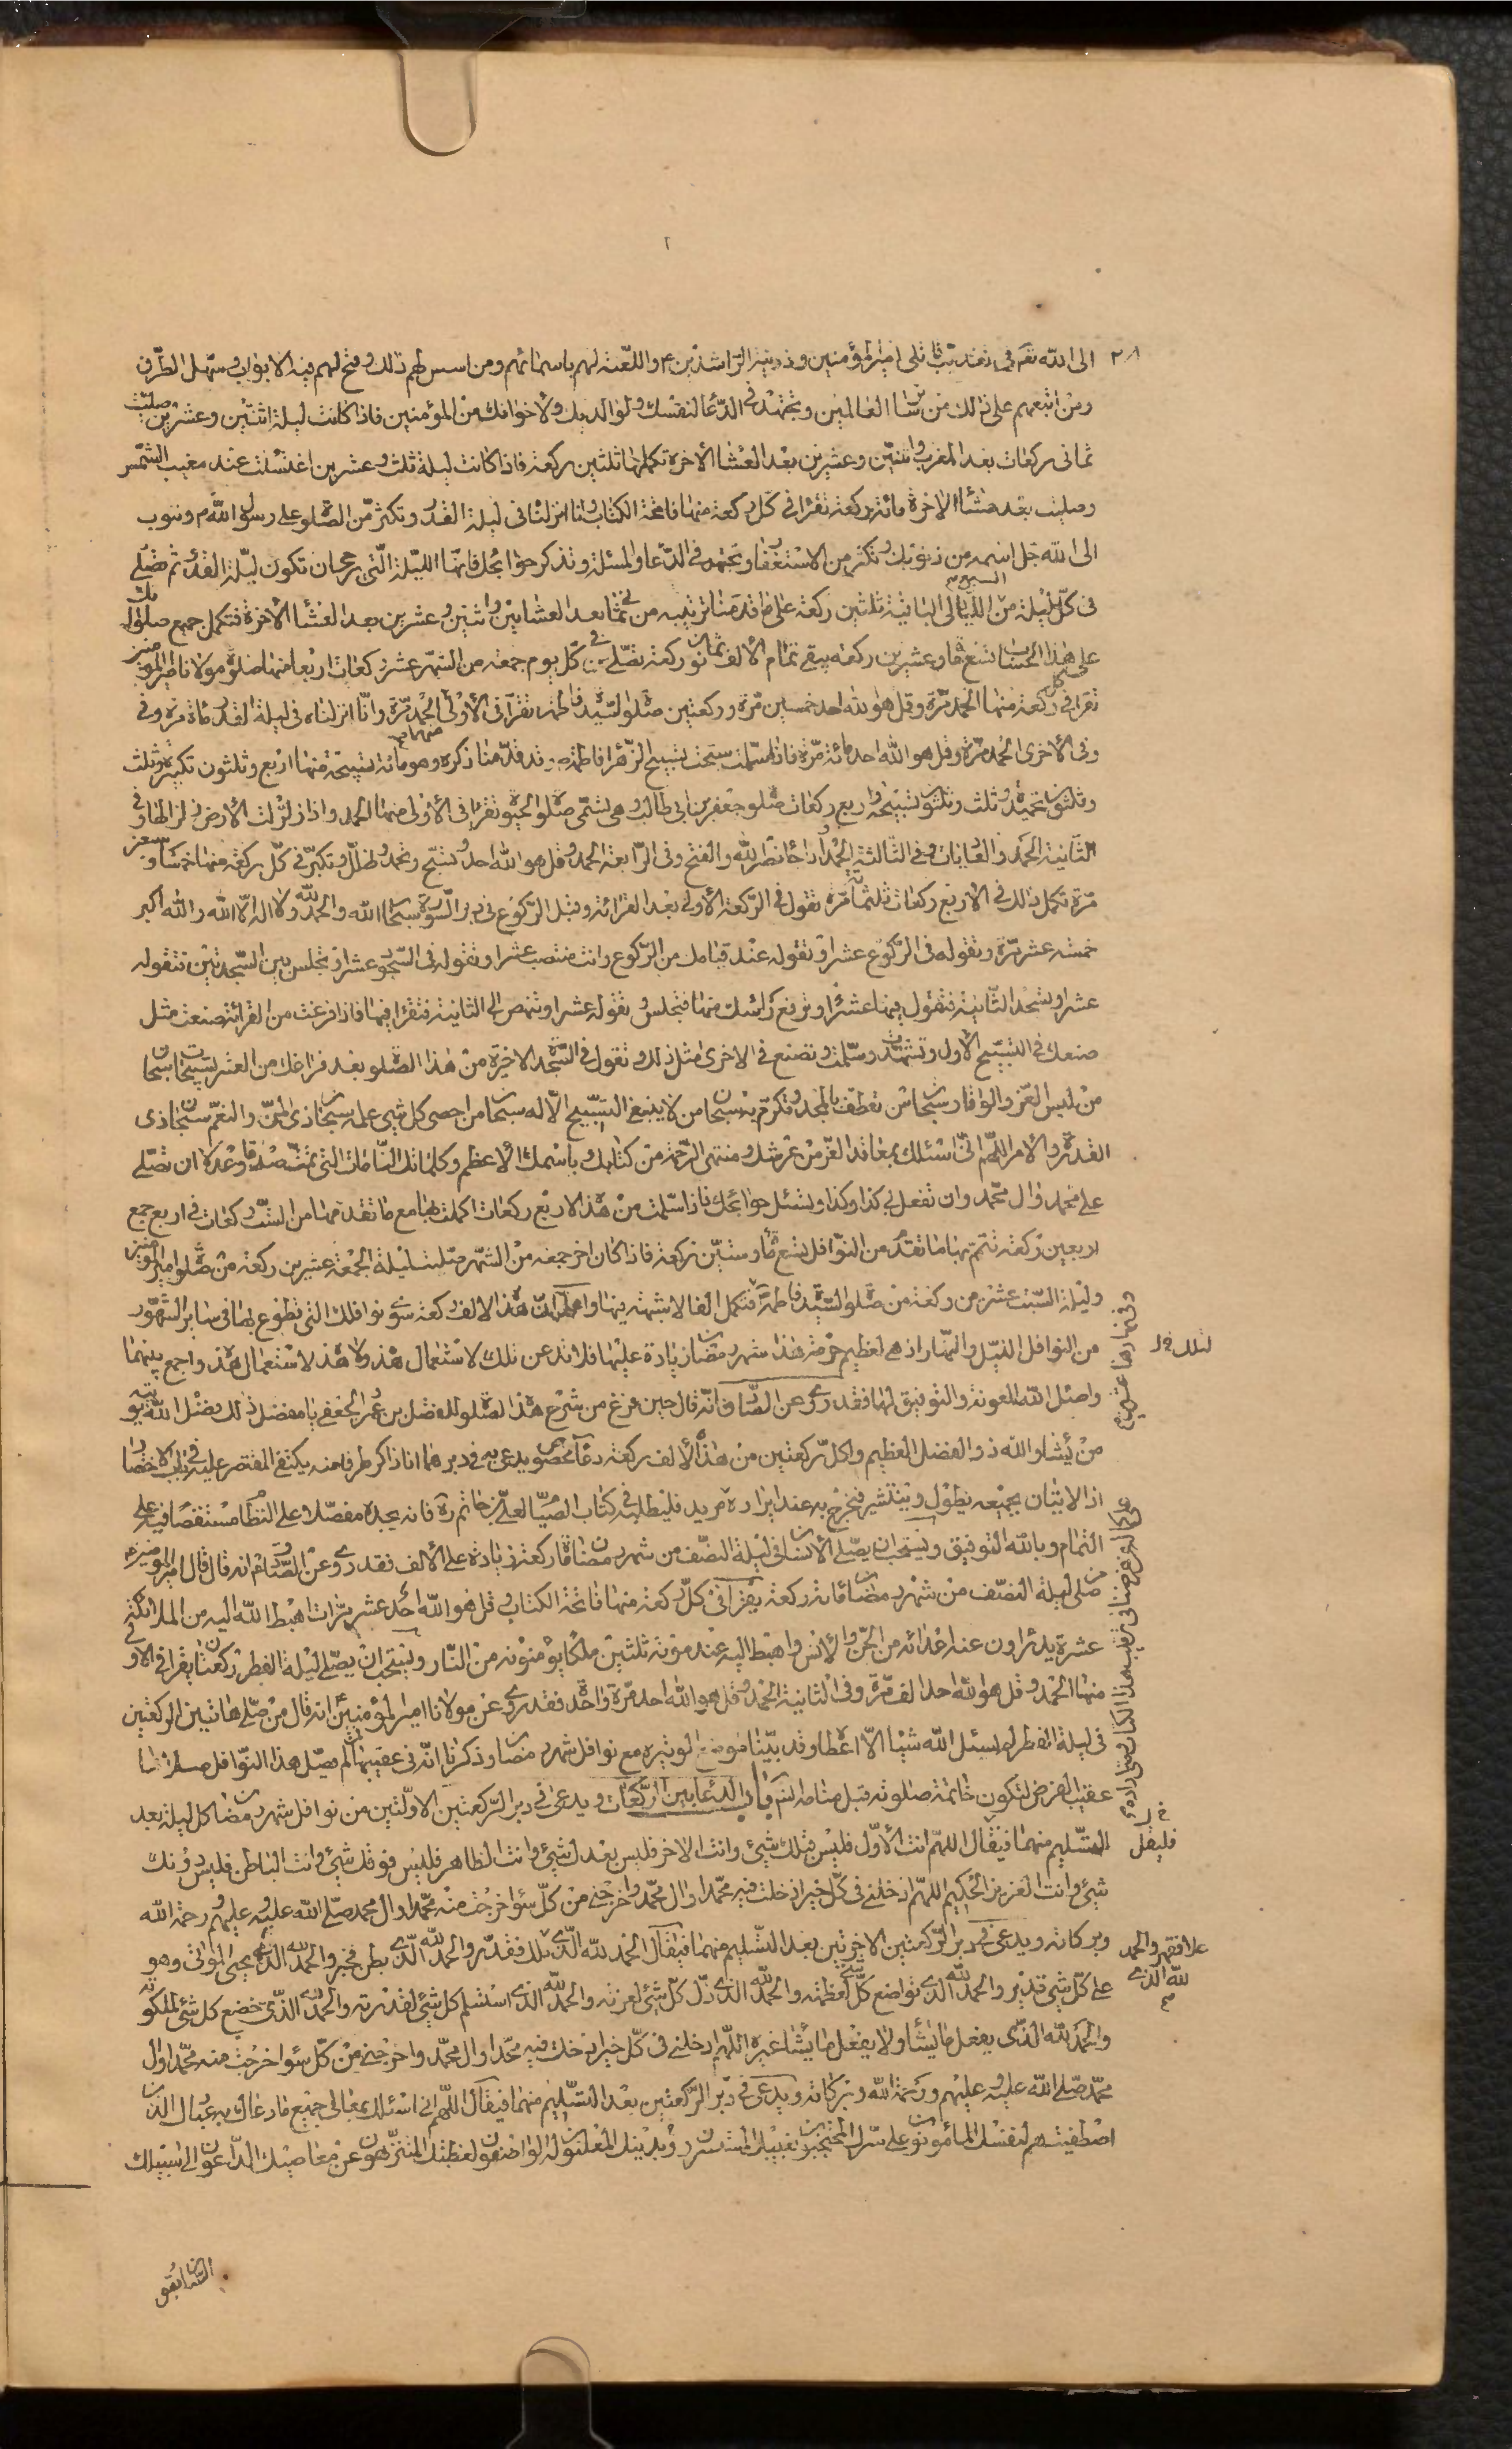 ٢٨
الى الله تعالى في تعذيب قاتلي امير المؤمنين وذريته الراشدين ع واللعنة لهم باسمائهم ومن اسس لهم ذلك وفتح لهم فيه الابواب وسهل الطرق
ومن اتبعهم على ذلك من سائر العالمين وتجتهد في الدعا لنفسك ولوالديك ولاخوانك من المؤمنين فاذا كانت ليلة اثنتين وعشرين صليت
ثماني ركعات بعد المغرب واثنتين وعشرين بعد العشا الاخرة تكملها ثلثين ركعة فاذا كانت ليلة ثلث وعشرين اغتسلت عند مغيب الشمس
وصليت بعد عشاء الاخرة مائة ركعة تقرا في كل ركعة منها فاتحة الكتاب وانا انزلناه في ليلة القدر وتكثر من الصلوة على رسول الله ص وتتوب
الى الله جل اسمه من ذنوبك وتكثر من الاستغفار وتجتهد في الدعا والمسئلة وتذكر حوائجك فانها الليلة التي يرجى ان تكون ليلة القدر ثم تصلي
في كل ليلة من الليالي السبع الباقية ثلثين ركعة على ما قدمنا ترتيبه من ثمان بعد العشايين واثنين وعشرين بعد العشا الاخرة فتكمل جميع صلواتك
على هذا الحساب تسع مائة وعشرين ركعة يبقى تمام الالف ثمانون ركعة تصلي في كل يوم جمعة من الشهر عشر ركعات اربعا منها صلوة مولانا امير المؤمنين
تقرا في كل ركعة منها الحمد مرة وقل هو الله احد خمسين مرة وركعتين صلوة السيدة فاطمة تقرا في الاولى الحمد مرة وانا انزلناه في ليلة القدر مائة مرة وفي
وفي الاخرى الحمد مرة وقل هو الله احد مائة مرة فاذا سلمت سبحت تسبيح الزهرا فاطمة وقد قدمنا ذكره وهو مائة تسبيحة منها اربع وثلثون تكبيرة وثلث
وثلثون تحميدة وثلث وثلثون تسبيحة واربع ركعات صلوة جعفر بن ابي طالب وهي تسمى صلوة الحبوة تقرا في الاولى منها الحمد واذا زلزلت الارض زلزالها وفي
الثانية الحمد والعاديات وفي الثالثة الحمد واذا جاء نصر الله والفتح وفي الرابعة الحمد وقل هو الله احد وتسبح وتحمد وتهلل وتكبر في كل ركعة منها خمسا وسبعين
مرة تكمل ذلك في الاربع ركعات ثلثمائة مرة تقول في الركعة الاولى بعد القرائة وقبل الركوع في دبر السورة سبحان الله والحمد لله ولا اله الا الله والله اكبر
خمسة عشر مرة وتقوله في الركوع عشرا وتقوله عند قيامك من الركوع وانت منتصب عشرا وتقوله في السجود عشرا وتجلس بين السجدتين فتقوله
عشرا وتسجد الثانية فتقول فيها عشرا وترفع راسك منها فتجلس وتقوله عشرا وتنهض الى الثانية فتقرا فيها فاذا فرغت من القرائة صنعت مثل
صنعك في التسبيح الاول وتشهدت وسلمت وتصنع في الاخرى مثل ذلك وتقول في السجدة الاخيرة من هذا الصلوة بعد فراغك من العشر تسبيحات سبحان
من لبس العز والوقار سبحان من تعطف بالمجد وتكرم به سبحان من لا ينبغي التسبيح الا له سبحان من احصى كل شيء علمه سبحان ذي المن والنعم سبحان ذي
القدرة والامر اللهم اني اسئلك بمعاقد العز من عرشك ومنتهى الرحمة من كتابك وباسمك الاعظم وكلماتك التامات التي تمت صدقا وعدلا ان تصلي
على محمد وال محمد وان تفعل بي كذا وكذا وتسئل حوائجك فاذا سلمت من هذه الاربع ركعات اكملت بها مع ما تقدمها من الست ركعات في اربع جمع
اربعين ركعة تتم بها ما تقدم من النوافل تسع مائة وستين ركعة فاذا كان اخر جمعة من الشهر صليت ليلة الجمعة عشرين ركعة من صلوة امير المؤمنين
وليلة السبت عشرين ركعة من صلوة السيدة فاطمة فتكمل الفا لا شبهة فيها واعلم ان هذا الالف ركعة سوى نوافلك التي تطوع بها في ساير الشهور
من النوافل الليل والنهار اذ هي لعظيم حرمة هذا شهر رمضان زيادة عليها فلا تدعن تلك لاستعمال هذه ولا هذه لاستعمال تلك واجمع بينهما
واسئل الله المعونة والتوفيق لهما فقد روى عن الصادق انه قال حين فرغ من شرح هذه الصلوة للمفضل بن عمر الجعفي يا مفضل ذلك فضل الله يؤتيه
من يشاء والله ذو الفضل العظيم ولكل ركعتين من هذا الالف ركعة دعا مخصوص يدعى به في دبرهما انا ذاكر طرفا منه يكتفي المقتصر عليه في طلب الاختصار
اذ الاتيان بجميعه يطول وينتشر فنخرج به عند ايراده
التمام وبالله التوفيق ويستحب ان يصلي الانسان في ليلة النصف من شهر رمضان مائة ركعة زيادة على الالف فقد روى عن الصادق انه قال قال امير المؤمنين
من صلى ليلة النصف من شهر رمضان مائة ركعة يقرا في كل ركعة منها فاتحة الكتاب وقل هو الله احد عشر مرات اهبط الله اليه من الملائكة
عشرة يدراون عنه اعدائه من الجن والانس واهبط اليه عند موته ثلثين ملكا يؤمنونه من النار ويستحب ان يصلي ليلة الفطر ركعتان يقرا في الاولى
منهما الحمد وقل هو الله احد الف مرة وفي الثانية الحمد وقل هو الله احد مرة واحدة فقد روى عن مولانا امير المؤمنين انه قال من صلى هاتين الركعتين
في ليلة الفطر لم يسئل الله شيئا الا اعطاه وقد بينا موضع الوتيرة مع نوافل شهر رمضان وذكرنا انه في عقيبها
عقيب الفرض لتكون خاتمة صلوته قبل منامه باب الدعا بين الركعات ويدعى في دبر الركعتين الاولتين من نوافل شهر رمضان كل ليلة بعد
التسليم منهما فيقال اللهم انت الاول فليس قبلك شيئ وانت الاخر فليس بعدك شيئ وانت الظاهر فليس فوقك شيئ وانت الباطن فليس دونك
شيئ وانت العزيز الحكيم اللهم ادخلني في كل خير ادخلت فيه محمدا وال محمد واخرجني من كل سوء اخرجت منه محمدا وال محمد صلى الله عليه وعليهم ورحمة الله
وبركاته ويدعى في دبر الركعتين الاخرتين بعد التسليم منهما فيقال الحمد لله الذي ملك فقدر والحمد لله الذي بطن فخبر والحمد لله الذي يحيى الموتى وهو
على كل شيئ قدير والحمد لله الذي تواضع كل شيئ لعظمته والحمد لله الذي ذل كل شيئ لعزته والحمد لله الذي استسلم كل شيئ لقدرته والحمد لله الذي خضع كل شيئ لملكوته
والحمد لله الذي يفعل ما يشاء ولا يفعل ما يشاء غيره اللهم ادخلني في كل خير ادخلت فيه محمدا وال محمد واخرجني من كل سوء اخرجت منه محمدا وال
محمد صلى الله عليه وعليهم ورحمة الله وبركاته ويدعى في دبر الركعتين بعد التسليم منهما فيقال اللهم اني اسئلك بمعاني جميع ما دعاك به عبادك الذين
اصطفيتهم لنفسك المامونون على سرك المحتجبون بغيبك المستسرون بدينك المعلنون به الواصفون لعظمتك المتنزهون عن معاصيك الداعون الى سبيلك
فليقل
علا فقهر والحمد
لله الذي
السابقون